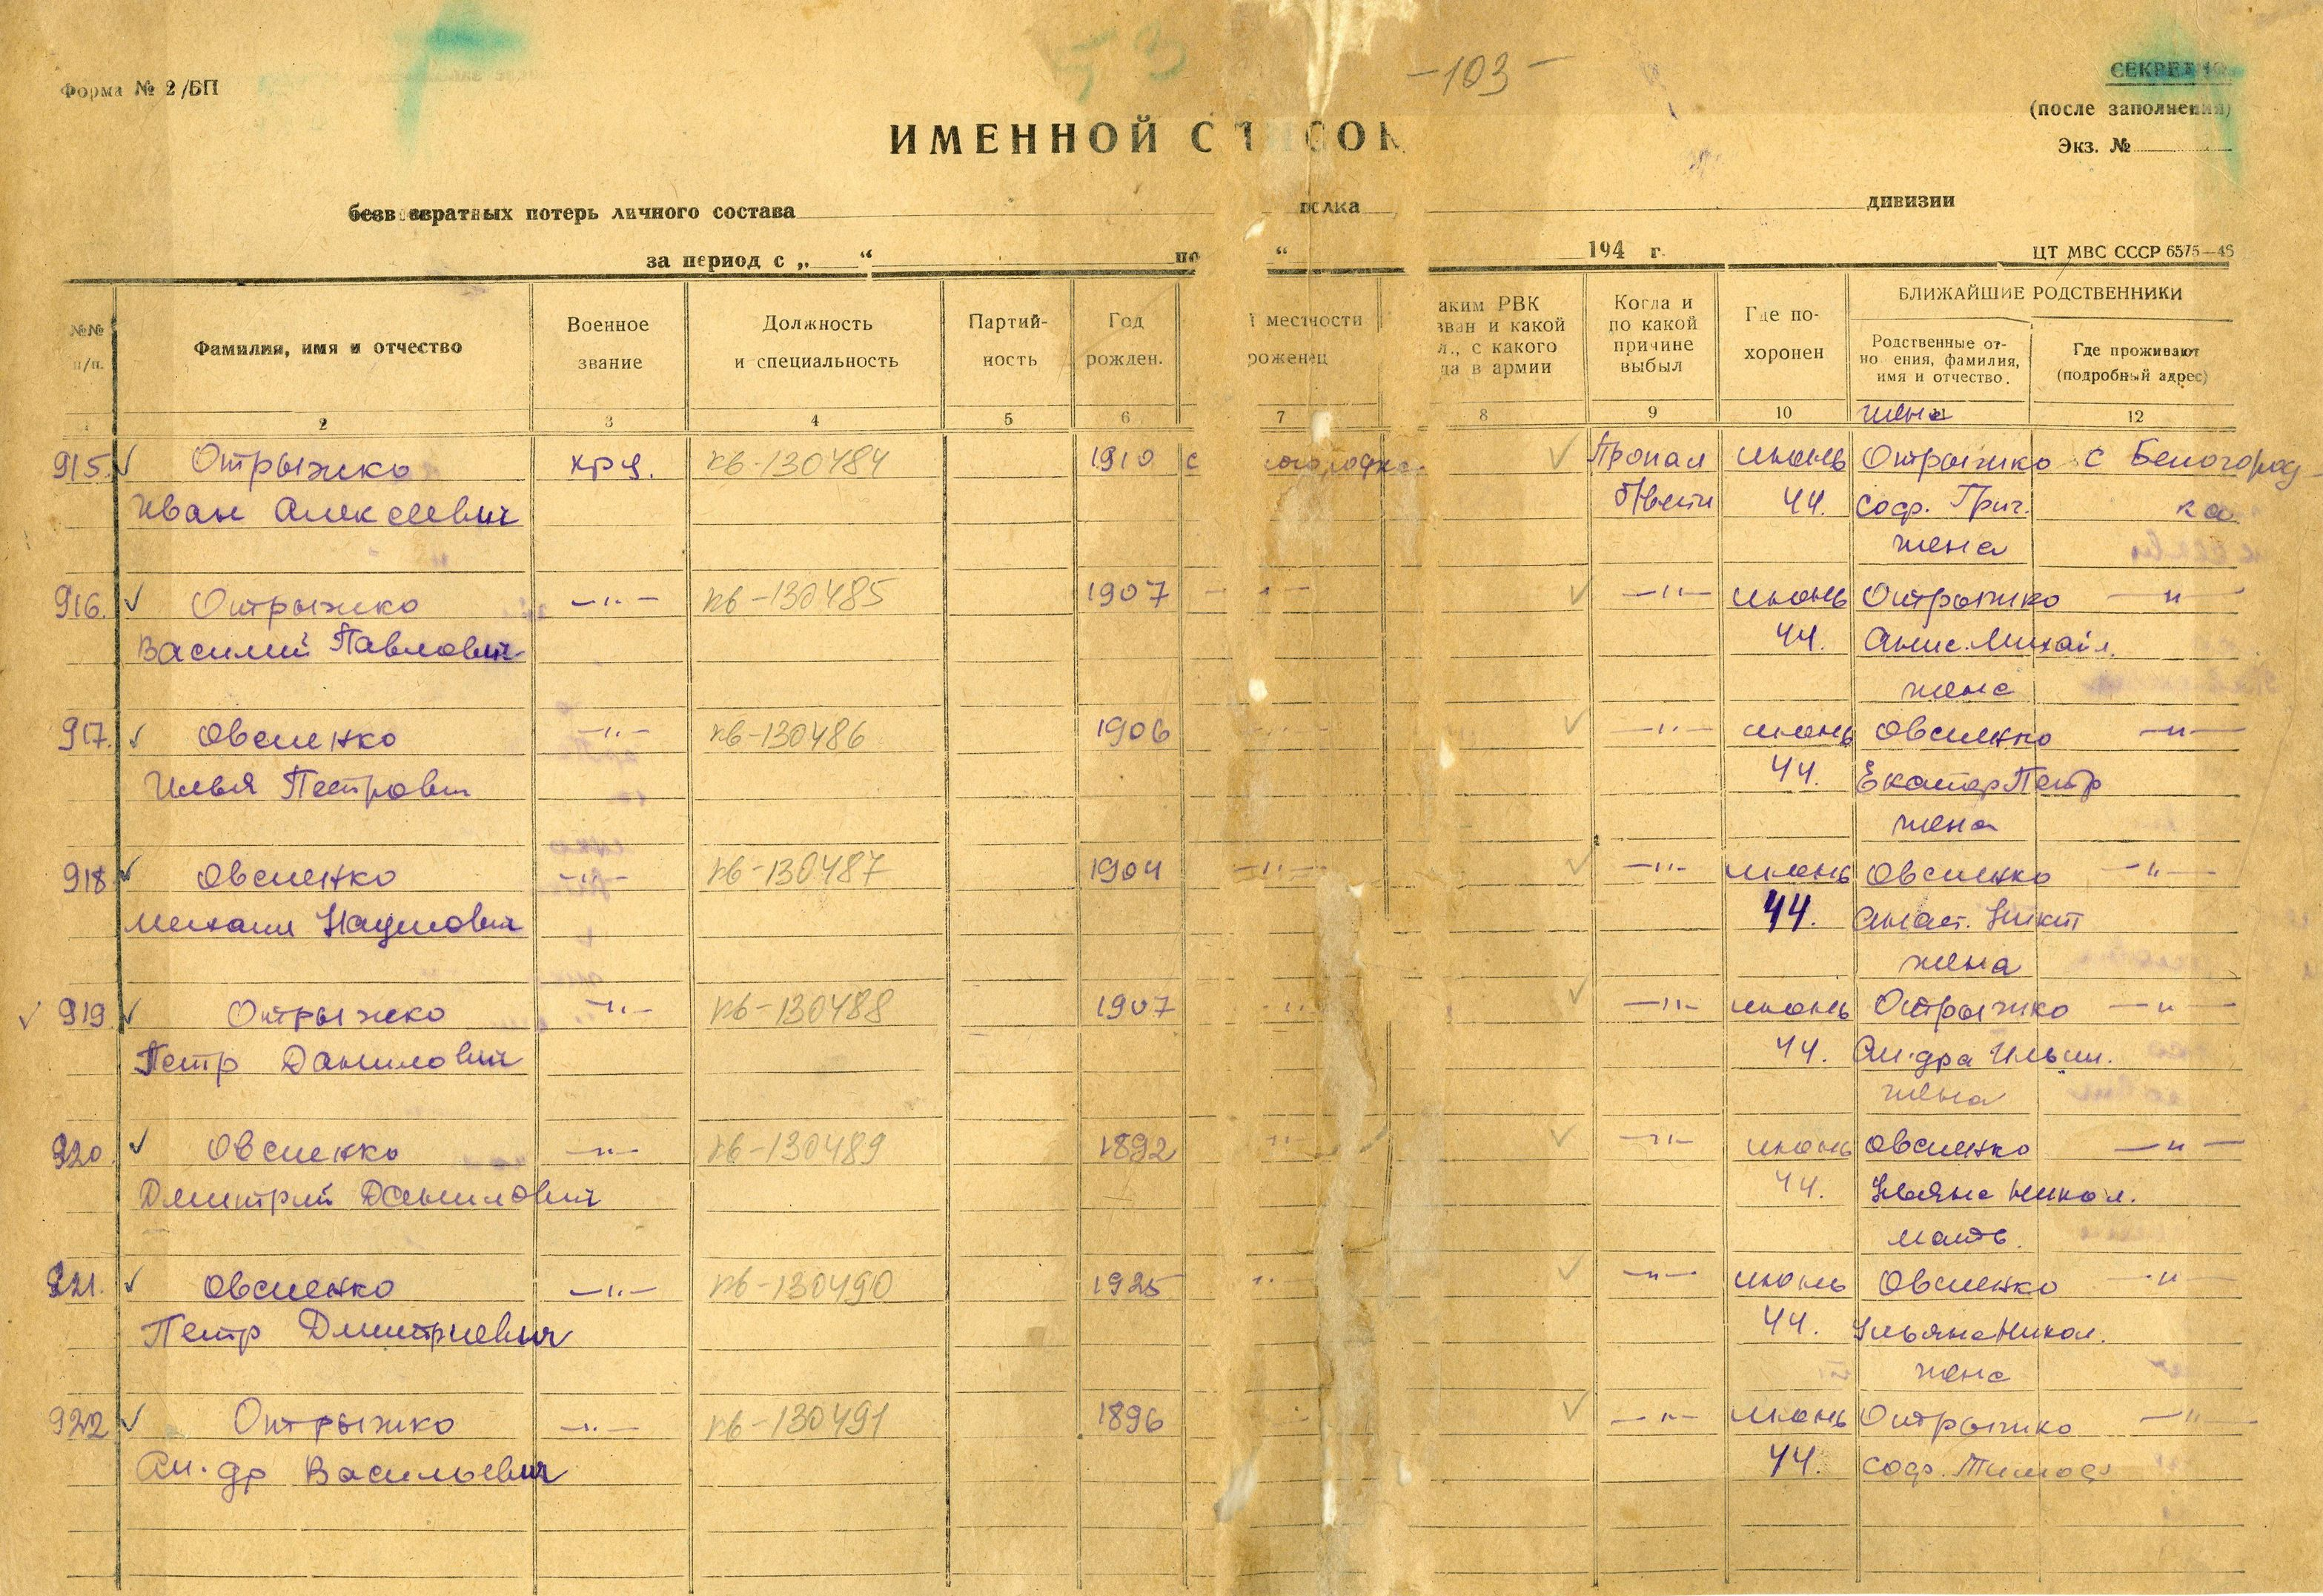 -103-
Форма № 2/БП
СЕКРЕТНО
(после заполнения)
Экз. №
ИМЕННОЙ СПИСОК
безвозвратных потерь личного состава полка дивизии
за период с „ “ по “ 194 г.
ЦТ МВС СССР 6575—46
№№ п/п.
Фамилия, имя и отчество
Военное звание
Должность и специальность
Партий-ность
Год рожден.
местности
роженец
аким РВК
зван и какой
л., с какого
да в армии
Когда и по какой причине выбыл
Где по-хоронен
БЛИЖАЙШИЕ РОДСТВЕННИКИ
Родственные от-но ения, фамилия, имя и отчество.
Где проживают (подробный адрес)
1 2 3 4 5 6 7 8 9 10 11 12
жена
915. Отрыжко кр-ц. кв-130484 1910 с Пропал июнь Отрыжко с Белогород
Иван Алексеевич б/вести 44. Соф. Григ. ка
жена
916. Отрыжко —"— кв-130485 1907 —"— —"— июнь Отрыжко —"—
Василий Павлович 44. Анис. Михайл.
жена
917. Овсиенко —"— кв-130486 1906 —"— —"— июнь Овсиенко —"—
Илья Петрович 44. Екатер Петр
жена
918 Овсиенко —"— кв-130487 1904 —"— —"— июнь Овсиенко —"—
Михаил Наумович 44. Анаст. Никит
жена
919 Отрыжко —"— кв-130488 1907 —"— —"— июнь Отрыжко —"—
Петр Данилович 44. Ал-дра Ильин.
жена
920. Овсиенко —"— кв-130489 1892 —"— —"— июнь Овсиенко —"—
Дмитрий Данилович 44. Ульяна Никол.
мать.
921. Овсиенко —"— кв-130490 1925 —"— —"— июнь Овсиенко —"—
Петр Дмитриевич 44. Ульяна Никол.
жена
922 Отрыжко —"— кв-130491 1896 —"— июнь Отрыжко —"—
Ал-др Васильевич 44. Соф. Тимоф